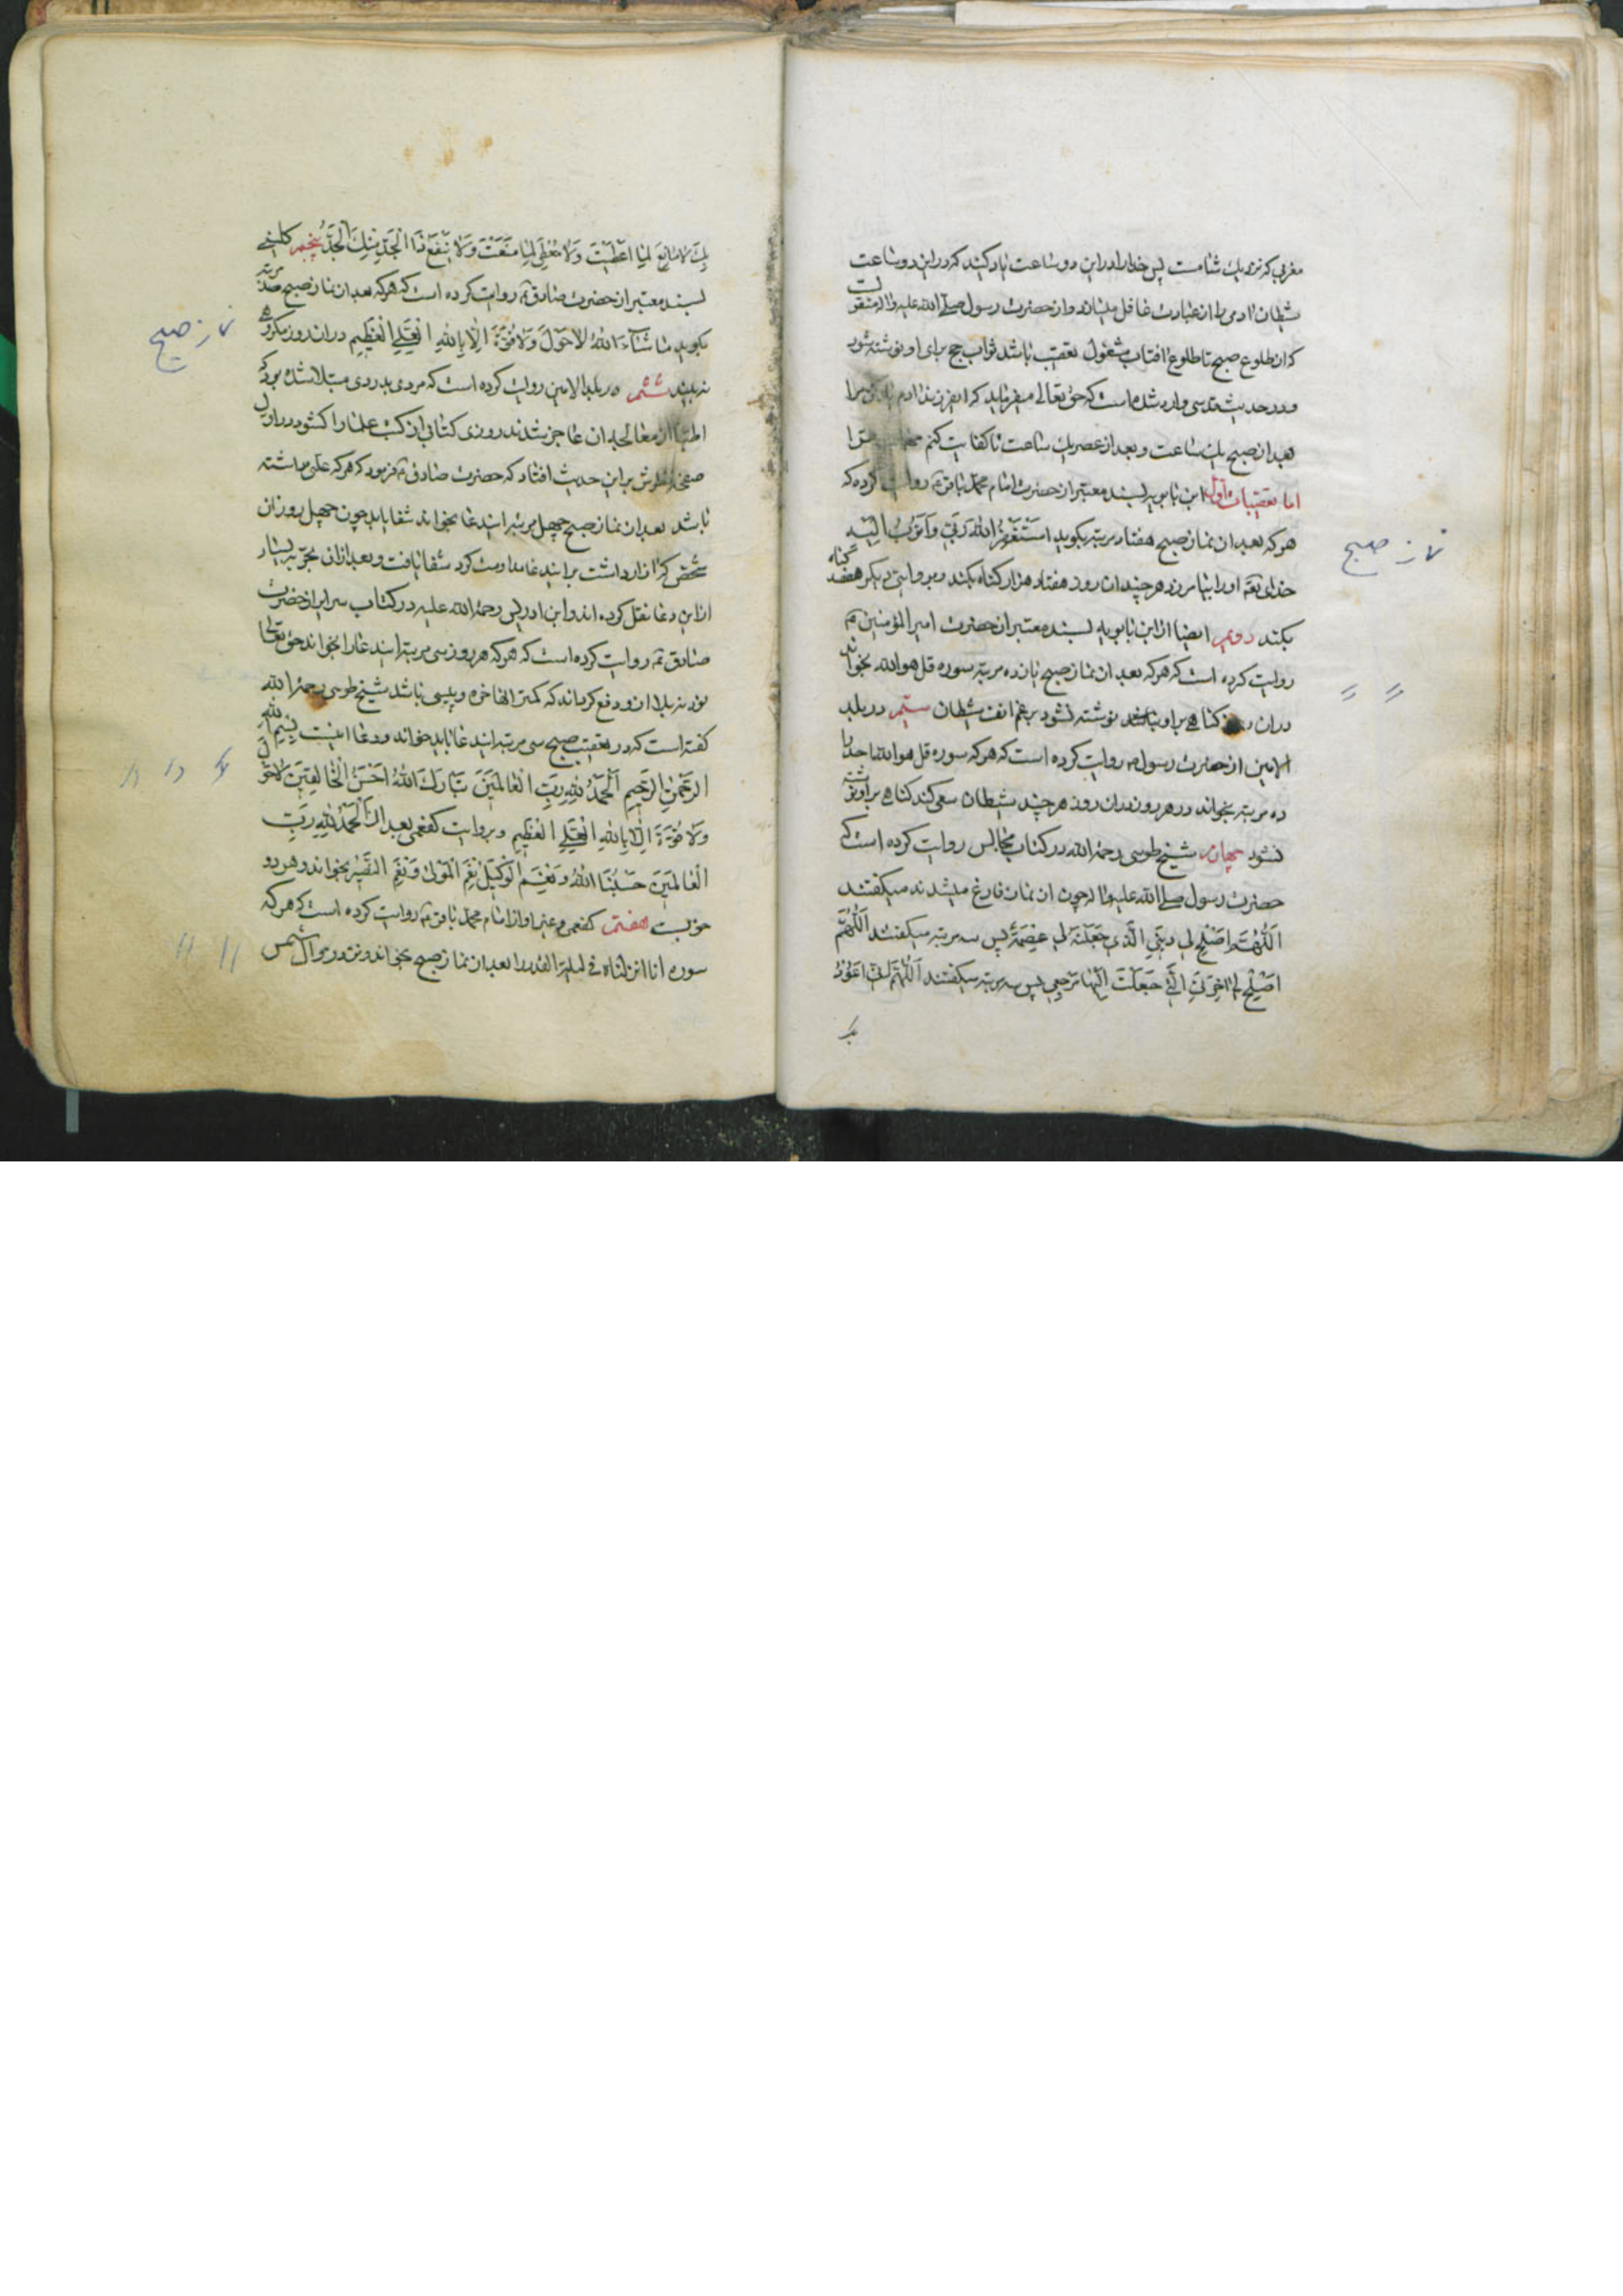 مغربی که نزدیك شامست پس خدا را در این دو ساعت یاد کنید که در این دو ساعت
شیطان ادمی را از عبادت غافل میسازد و از حضرت رسول صلی الله علیه واله منقولست
که از طلوع صبح تا طلوع افتاب مشغول تعقیب باشد ثواب حج برای او نوشته شود
و در حدیث قدسی وارد شده است که حق تعالی میفرماید که ای فرزند ادم یاد کن مرا
بعد از صبح یك ساعت و بعد از عصر یك ساعت تا کفایت کنم ترا
اما تعقیبات اول ابن بابویه بسند معتبر از حضرت امام محمد باقر ع روایت کرده که
هر که بعد از نماز صبح هفتاد مرتبه بگوید استغفر الله ربی واتوب الیه
خدای تعه او را بیامرزد هر چند ان روز هفتاد هزار گناه بکند و بروایتی دیگر هفصد گناه
بکند دویم ایضا از ابن بابویه بسند معتبر از حضرت امیر المؤمنین ع
روایت کرده است که هر که بعد از نماز صبح یازده مرتبه سوره قل هو الله بخواند
در ان روز گناهی بر او نوشته نشود برغم انف شیطان سیم در بلد
الامین از حضرت رسول ص روایت کرده است که هر که سوره قل هو الله احد را
ده مرتبه بخواند در هر روز در ان روز هر چند شیطان سعی کند گناهی بر او نوشته
نشود چهارم شیخ طوسی رحمه الله در کتاب مجالس روایت کرده است که
حضرت رسول صلی الله علیه واله چون از نماز فارغ میشدند میگفتند
اللهم اصلح لی دینی الذی جعلته لی عصمة پس سه مرتبه میگفتند اللهم
اصلح لی اخرتی التی جعلت الیها مرجعی پس سه مرتبه میگفتند اللهم انی اعوذ
بك
نماز صبح
〃 〃
بك لا مانع لما اعطیت ولا معطی لما منعت ولا ینفع ذا الجد منك الجد پنجم کلینی
بسند معتبر از حضرت صادق ع روایت کرده است که هر که بعد از نماز صبح صد مرتبه
بگوید ما شاء الله لا حول ولا قوة الا بالله العلی العظیم در ان روز مکروهی
نه بیند ششم در بلد الامین روایت کرده است که مردی بدردی مبتلا شده بود که
اطبا از معالجه ان عاجز شدند روزی کتابی از کتب علما را کشود در اول
صفحه نظرش بر این حدیث افتاد که حضرت صادق ع فرمود که هر که علتی داشته
باشد بعد از نماز صبح چهل مرتبه ایندعا بخواند شفا یابد چون چهل روز ان
شخص که ازار داشت بر ایندعا مداومت کرد شفا یافت و بعد از ان تجربه بسیار
از این دعا نقل کرده اند و ابن ادریس رحمه الله علیه در کتاب سرایر از حضرت
صادق ع روایت کرده است که هر که هر روز سی مرتبه ایندعا را بخواند حق تعالی
نود نه بلا از او دفع کرداند که کمتر انها خوره و پیسی باشد شیخ طوسی رحمه الله
کفته است که در تعقیب صبح سی مرتبه ایندعا باید خواند و دعا اینست بسم الله
الرحمن الرحیم الحمد لله رب العالمین تبارك الله احسن الخالقین لا حول
ولا قوة الا بالله العلی العظیم و بروایت کفعمی بعد از الحمد لله رب
العالمین حسبنا الله ونعم الوکیل نعم المولی ونعم النصیر بخواند و هر دو
خوبست هفتم کفعمی و غیر او از امام محمد باقر ع روایت کرده است که هر که
سوره انا انزلناه فی لیلة القدر را بعد از نماز صبح بخواند و نزد زوال شمس
نماز صبح
〃 〃 〃
〃 〃